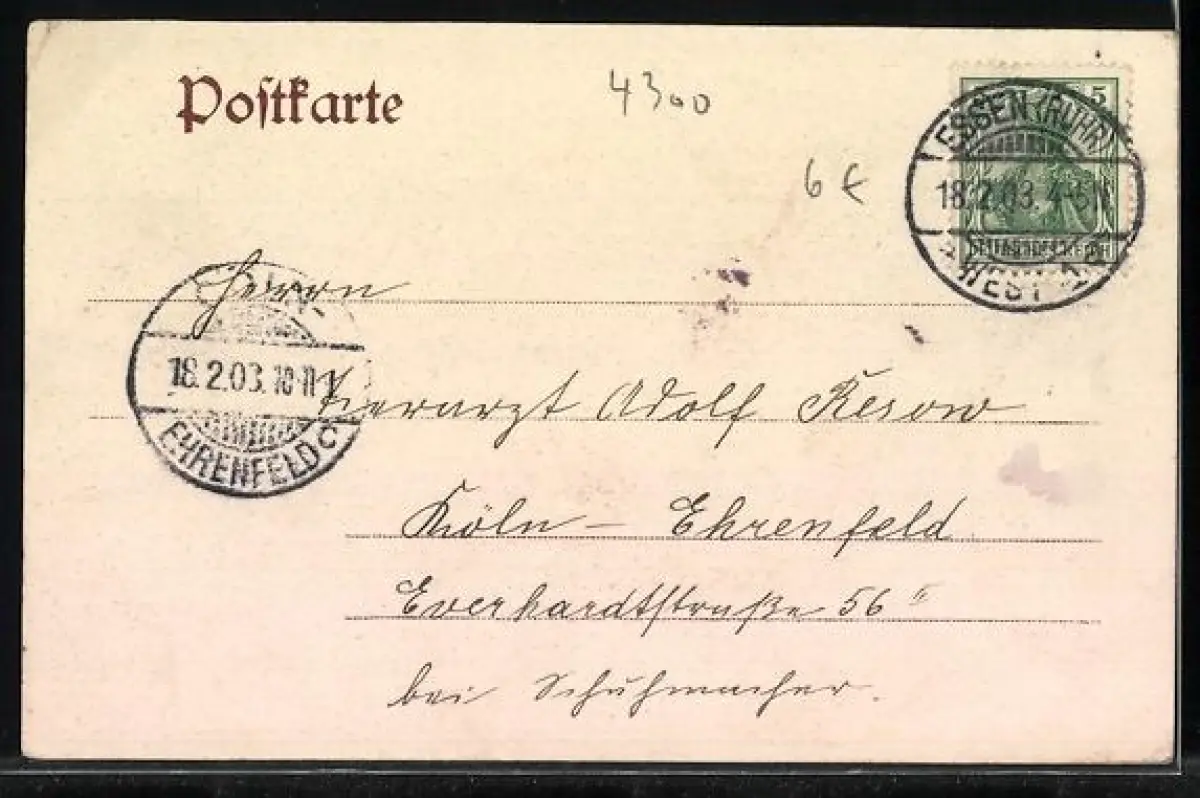 Postkarte
4300
6 €
5
ESSEN (RUHR)
18.2.03. 4-5N
* WEST 1
Herrn
18.2.03. 10-11
EHRENFELD C
Tierarzt Adolf Kesow
Köln – Ehrenfeld
Everhardtstraße 56 II
bei Schuhmacher.